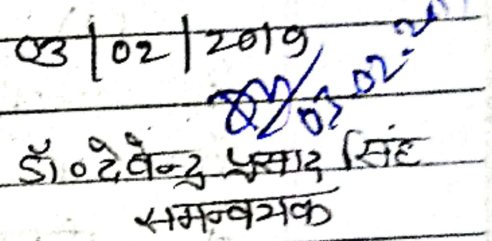 03/02/2019
03.02.2
डॉ० देवेन्द्र प्रसाद सिंह
समन्वयक